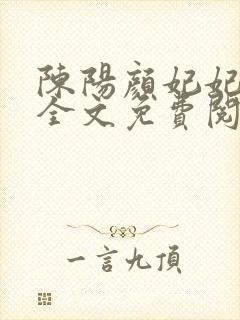 陳陽顏妃妃
全文免費閱
一言九頂